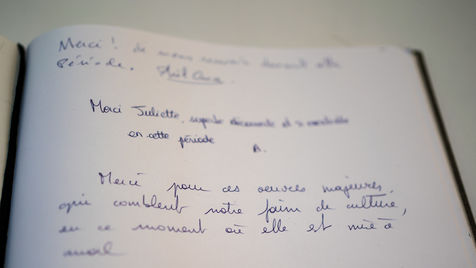 Merci ! de nous recevoir durant cette
période.
Merci Juliette, superbe découverte et
en cette période A.
Merci pour ces oeuvres majeures,
qui comblent notre faim de culture,
en ce moment où elle est mise à
mal